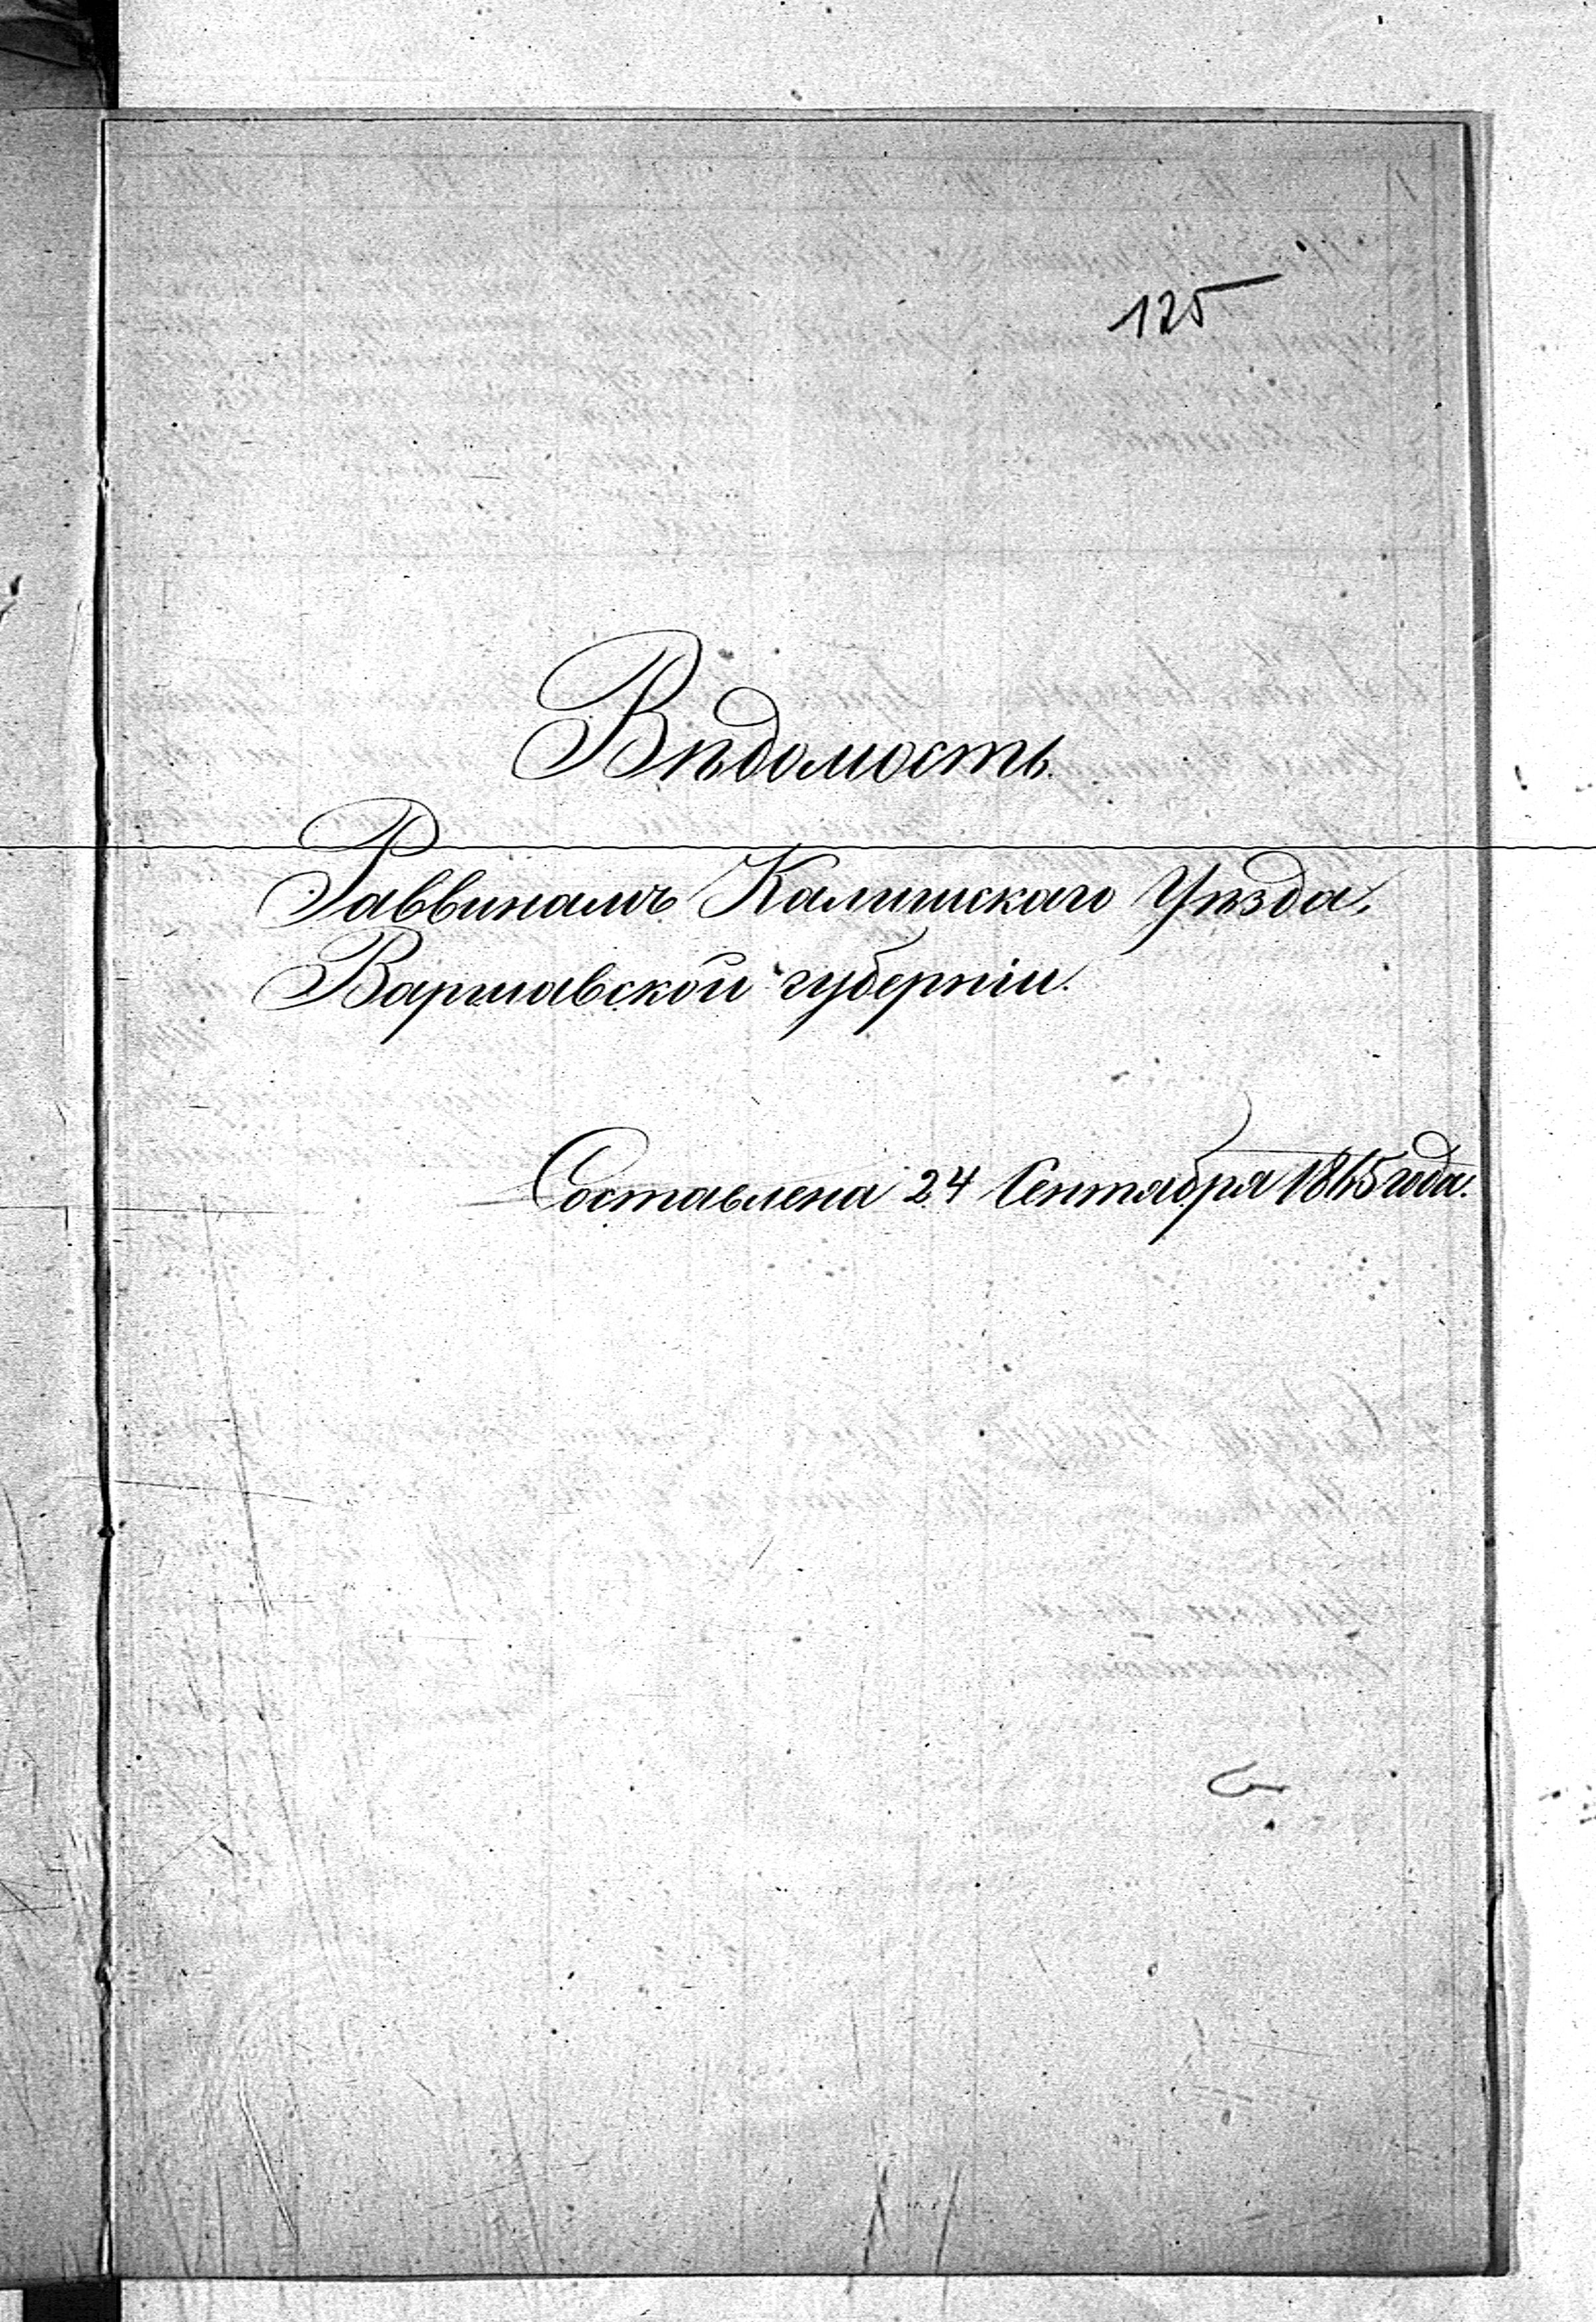 125
Вѣдомость
Раввинамъ Калишскаго Уѣзда,
Варшавской губерніи.
Составлена 24 Сентября 1865 года.